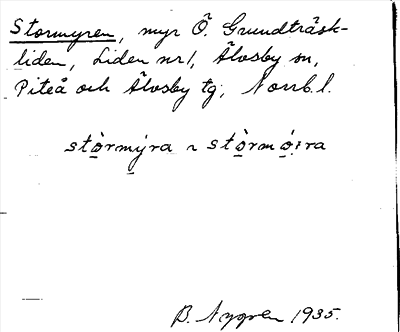 Stormyren, myr Ö. Grundträsk-
liden, Liden nr 1, Älvsby sn,
Piteå och Älvsby tg, Norrb. l.
stòrmýra ~ stòrmó:ra
B. Nygren 1935.